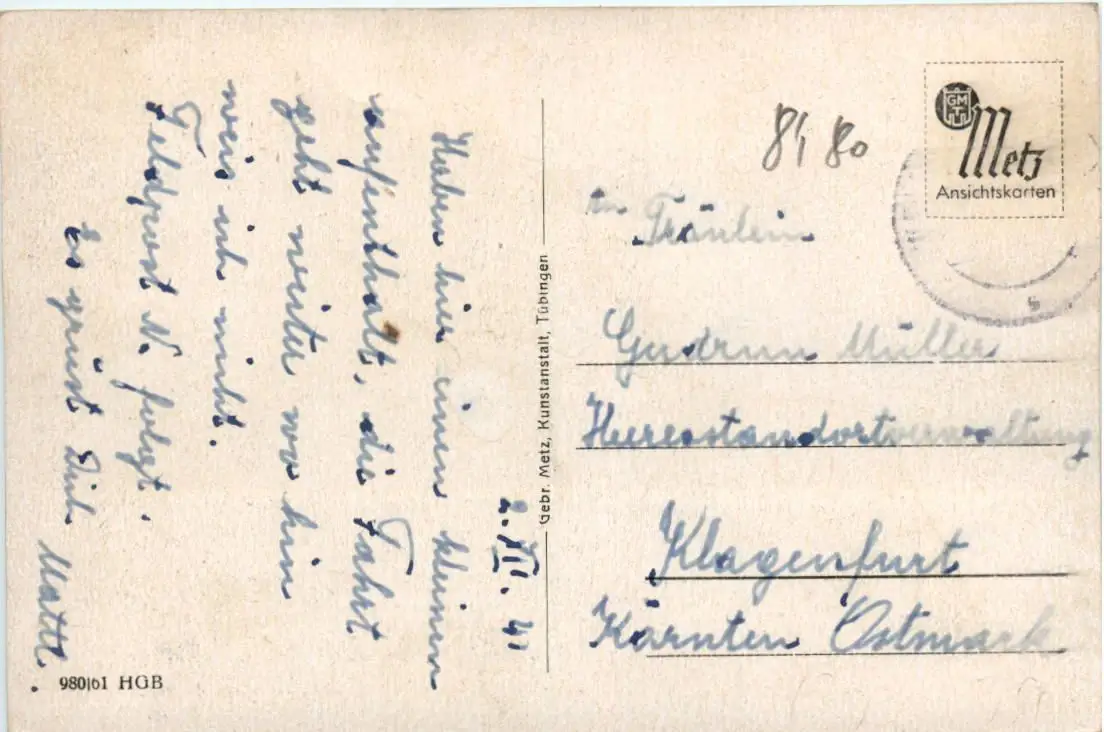 2. XII. 41
Haben hier einen kleinen
aufinthalt, die Fahrt
geht weiter wo hin
weis ich nicht.
Feldpost N. folgt.
Es grüst Dich
Gebr. Metz, Kunstanstalt, Tübingen
980/61 HGB
8180
GMT
Metz
Ansichtskarten
Fräulein
Gudrun Müller
Heeresstandortverwaltung
Klagenfurt
Kärnten Ostmark